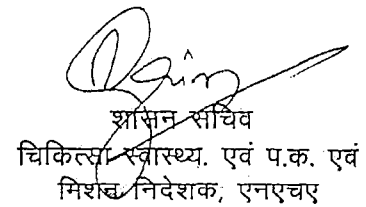 शासन सचिव
चिकित्सा स्वास्थ्य. एवं प.क. एवं
मिशन निदेशक, एनएचए